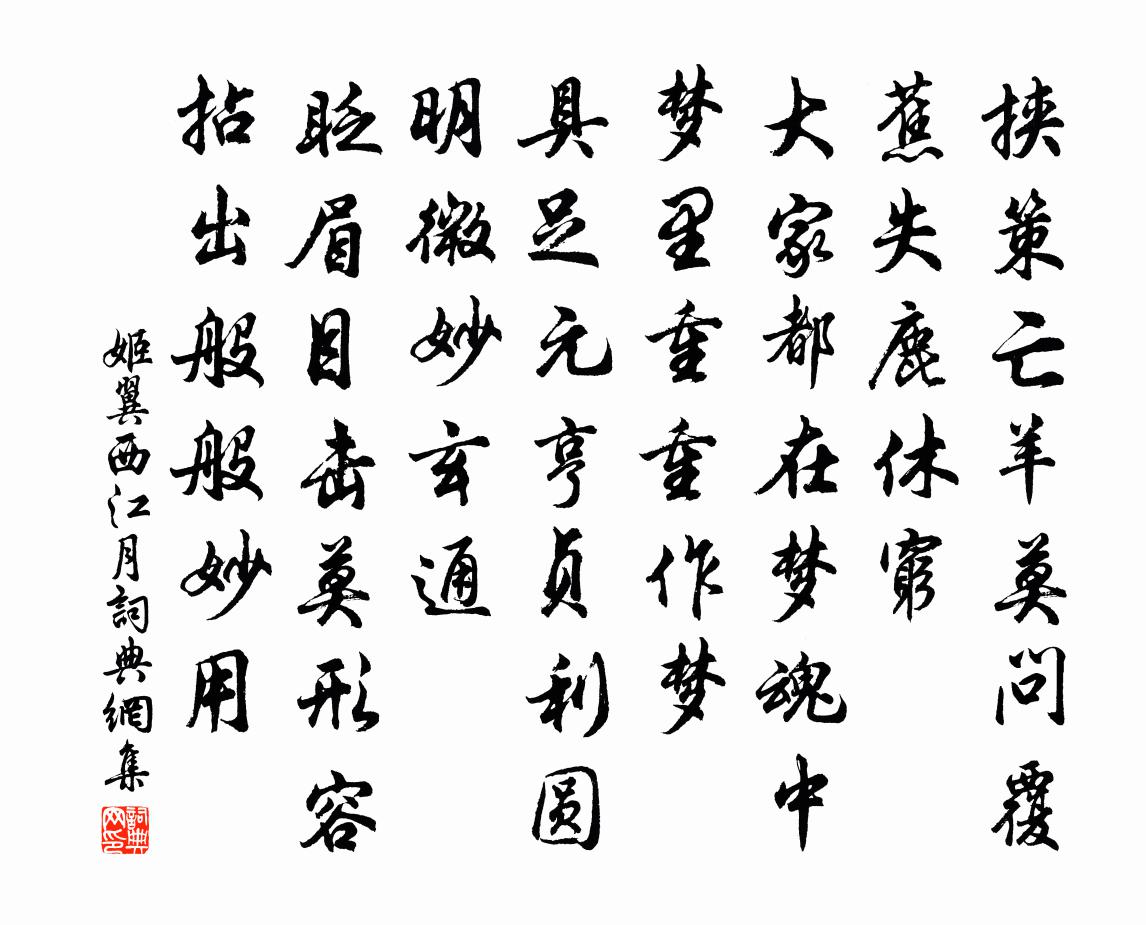 挟策亡羊莫问覆
蕉失鹿休穷
大家都在梦魂中
梦里重重作梦
具足元亨贞利圆
明微妙玄通
眨眉目击莫形容
拈出般般妙用
姬翼西江月詞典網集
詞典
网印